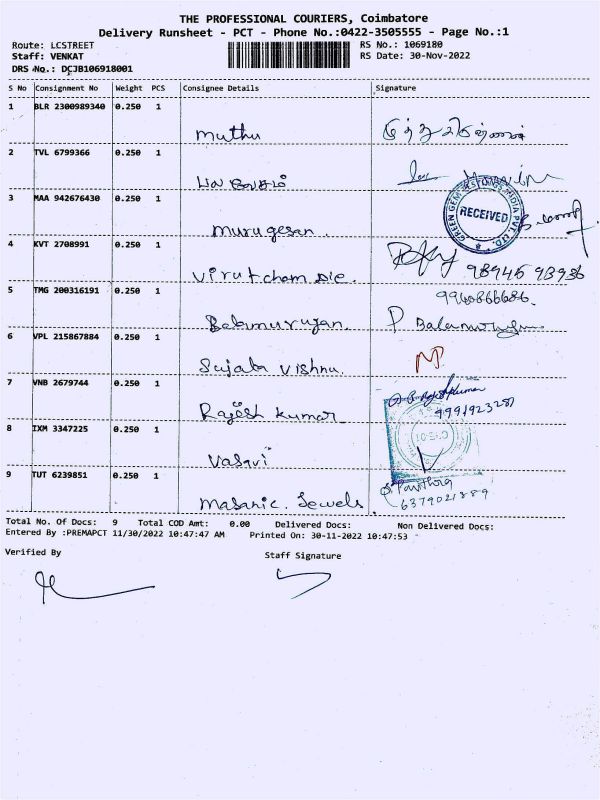 THE PROFESSIONAL COURIERS, Coimbatore
Delivery Runsheet - PCT - Phone No.:0422-3505555 - Page No.:1
Route: LCSTREET
RS No.: 1069180
Staff: VENKAT
RS Date: 30-Nov-2022
DRS No.: DCJB106918001
S No Consignment No Weight PCS Consignee Details Signature
1 BLR 2300989340 0.250 1
Muthu
2 TVL 6799366 0.250 1
3 MAA 942676430 0.250 1
GREEN GEM INDIA PVT. LTD.
RECEIVED
Murugesan.
4 KVT 2708991 0.250 1
98945 93936
5 TMG 200316191 0.250 1
9940866686
Balamurugan. P Balamurugan
6 VPL 215867884 0.250 1
Sujata Vishnu.
7 VNB 2679744 0.250 1
Rajesh Kumar
8 IXM 3347225 0.250 1
Vasavi
9 TUT 6239851 0.250 1
S. Pavithra
6379021889
Masaric. Jewels
Total No. Of Docs: 9 Total COD Amt: 0.00 Delivered Docs: Non Delivered Docs:
Entered By :PREMAPCT 11/30/2022 10:47:47 AM Printed On: 30-11-2022 10:47:53
Verified By
Staff Signature